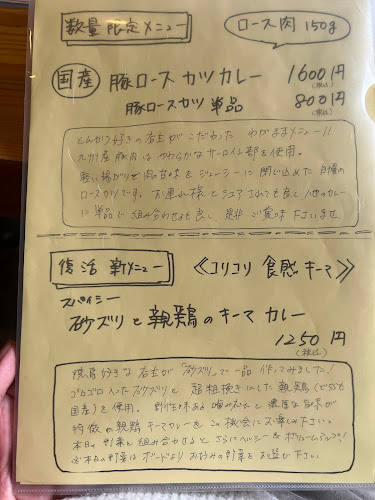 数量限定メニュー
ロース肉 150g
国産 豚ロースカツカレー 1600円
(税込)
豚ロースカツ 単品 800円
(税込)
とんかつ好きの店主がこだわった わがままメニュー!!
九州産豚肉は やわらかなサーロイン部を使用。
軽い揚がりで肉の旨味をジューシーに閉じ込めた 自慢の
ロースカツです。お連れ様とシェアされても良し、他のカレー
に単品で組み合わせも良し、是非ご賞味下さいませ
復活 新メニュー
≪コリコリ 食感 キーマ≫
スパイシー
砂ズリと親鶏のキーマ カレー
1250円
(税込)
焼鳥好きな店主が「砂ズリ」で一品作ってみました!
ゴロゴロ入った砂ズリと 超粗挽きにした親鶏(どちらも
国産)を使用。 野性味ある噛み応えと 濃厚な旨味が
特徴の親鶏キーマカレーをこの機会にお楽しみ下さい。
本日の野菜と組み合わせると さらにヘルシー&ボリュームアップ!
※本日の野菜はボードより お好みの野菜をお選び下さい